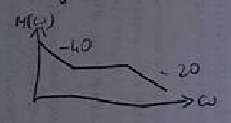 M(ω)
-40
- 20
ω